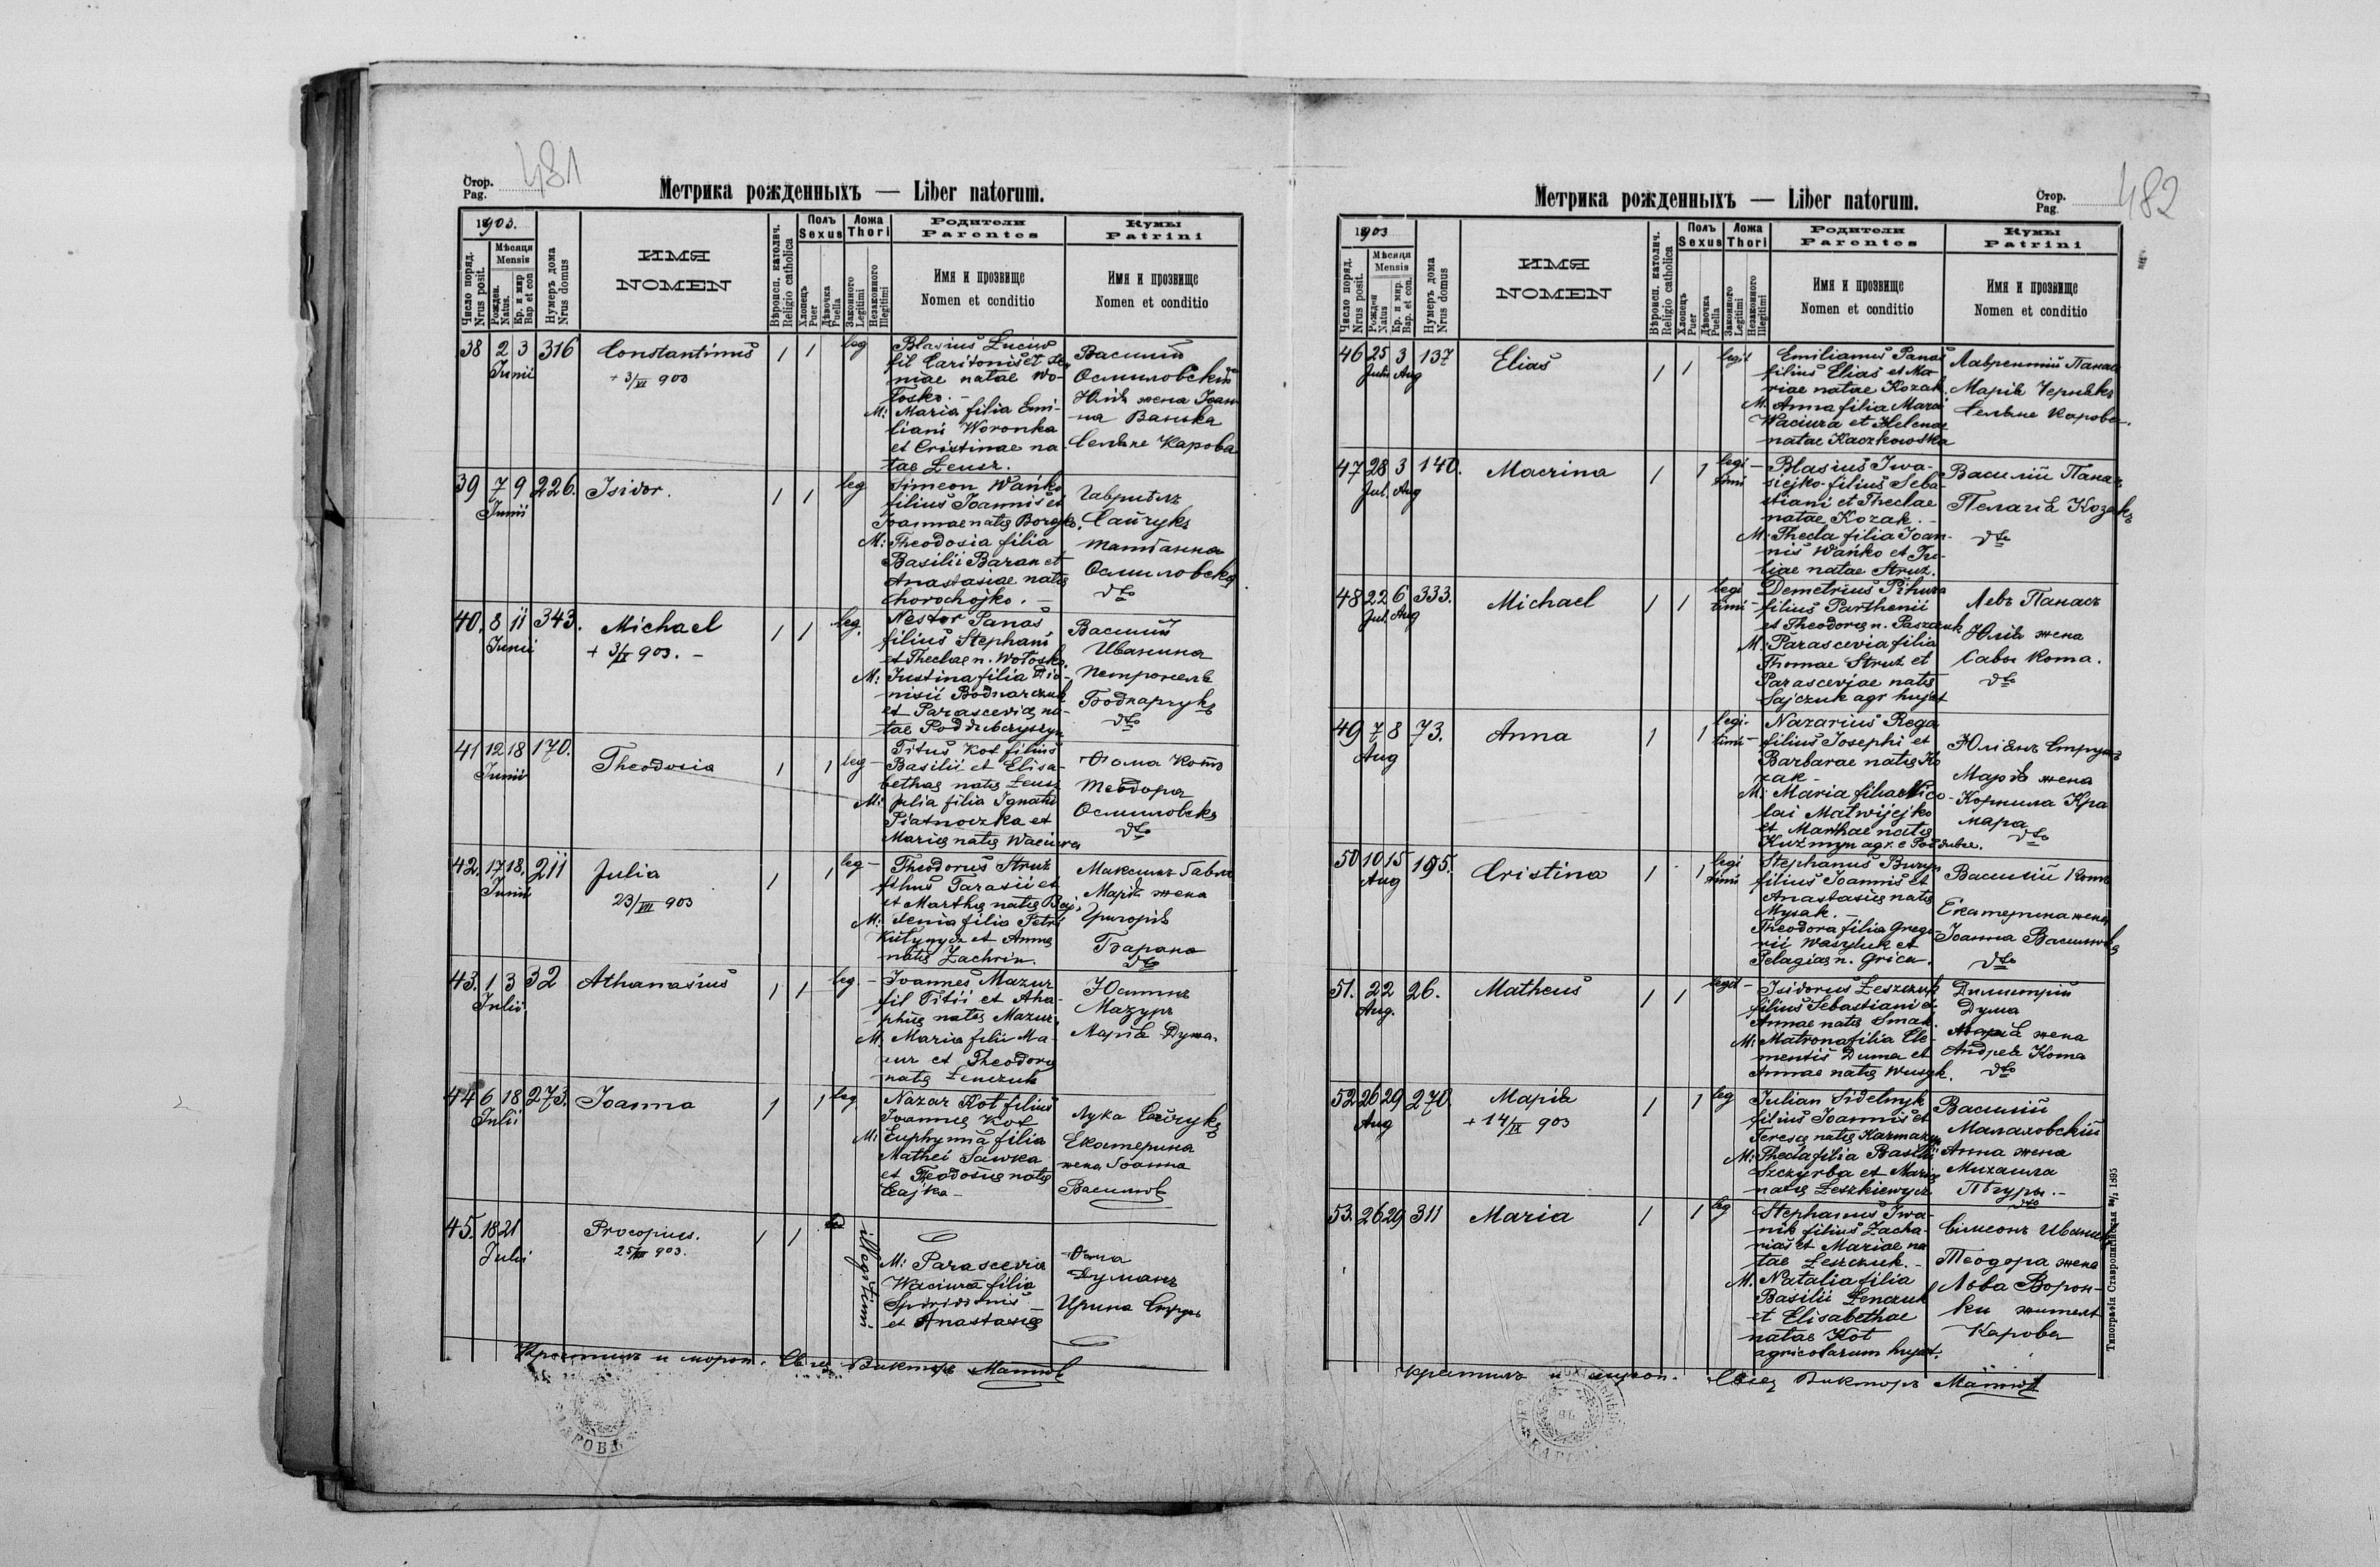 Стор.
Pag.
481
Метрика рожденныхъ — Liber natorum.
1903.
Число поряд.
Nrus posit.
Мѣсяця
Mensis
Рожден.
Natus.
Кр. и мир
Bap. et con
Нумеръ дома
Nrus domus
ИМЯ
NOMEN
Вѣроисп. католич.
Religio catholica
Полъ
Sexus
Хлопецъ
Puer
Дѣвочка
Puella
Ложа
Thori
Законного
Legitimi
Незаконного
Illegitimi
Родители
Parentes
Имя и прозвище
Nomen et conditio
Кумы
Patrini
Имя и прозвище
Nomen et conditio
38 2 3 316 Constantinus 1 1 leg
Junii
+ 3/VI 903
Blasius
fil Caritonis et Xe-
niae natae Wo-
łosko. -
M: Maria filia Emi-
liani Woronka
et Cristinae na-
tae
Василій
Осмиловскій
Юлія жена Іоан
на Ванька
Селяне Карова
39 7 9 226. Isidor. 1 1 leg
Junii
Simeon Wańko
filius Joannis et
Joannae natae
M: Theodosia filia
Basilii Baran et
Anastasiae natae
Chorochojko. —
Гавріилъ
Сайчукъ
Татіанна
Осмиловска
dto
40. 8 11 343. Michael 1 1 leg.
Junii
903. -
Nestor Panas
filius Stephani
et Theclae n. Wołosko.
M: Justina filia Dio-
nisii Bodnarczuk
et Parasceviae na-
tae
Василій
Иванина
Петронеля
Боднарчукъ
dto
41 12 18 170. Theodosia 1 1 leg
Junii
Titus Kot filius
Basilii et Elisa-
bethae natae
M: Julia filia Ignatii
Piatnoczka et
Mariae natae Waciura
Ѳома Котъ
Теодора
Осмиловска
dto
42. 17 18. 211 Julia 1 1 leg
Junii
23/VII 903
Theodorus Struż
filius Tarasii et
et Marthae natae
M: Xenia filia Petri
et Annae
natae Zachrin.
Марія жена
Григорія
Барана
dto
43. 1 3 32 Athanasius 1 1 leg.
Julii
Joannes Mazur
fil Titii et Aha-
phiae natae Mazur.
M. Maria filii Ma-
zur et Theodorae
natae Lenczuk
Юстинъ
Мазуръ
Марія Дума.
44 6 18 273. Joanna 1 1 leg
Julii
Nazar Kot filius
Joannis Kot
M: Euphymia filia
Mathei Sawka
et Theodosiae natae
Cajka -
Лука Сайчукъ
Екатерина
жена Іоанна
45. 18 21 Procopius. 1 1 illegitimi
Julii
903.
M: Parascevia
Waciura filia
Spiridionis —
et Anastasiae
Ѳома
Думанъ
Ирина
Крестилъ и мѵроп. Викторъ
482
Метрика рожденныхъ — Liber natorum.
Стор.
Pag.
1903
Число поряд.
Nrus posit.
Мѣсяця
Mensis
Рожден
Natus
Кр. и мир.
Bap. et con.
Нумеръ дома
Nrus domus
ИМЯ
NOMEN
Вѣроисп. католич.
Religio catholica
Полъ
Sexus
Хлопецъ
Puer
Дѣвочка
Puella
Ложа
Thori
Законного
Legitimi
Незаконного
Illegitimi
Родители
Parentes
Имя и прозвище
Nomen et conditio
Кумы
Patrini
Имя и прозвище
Nomen et conditio
46 25 3 137 Elias 1 1 legit
Julii Aug
Emilianus Panas
filius Elias et Ma-
riae natae Kozak.
M. Anna filia Marci
Waciura et Helenae
natae Kaczkowska
Лаврентій Панас
Марія Чернякъ
Селяне Карова.
47 28 3 140. Macrina 1 1 legi-
timi
Jul. Aug
Blasius Iwa-
siejko filius Seba-
stiani et Theclae
natae Kozak. -
M: Thecla filia Joan-
nis Wańko et Ju-
liae natae Struż.
Василій Панас
Пелагія Козакъ
dto
48 22 6 333. Michael 1 1 legi
timi
Jul. Aug
Demetrius Pihura
filius Parthenii
et Theodorae n. Paszczuk
M: Parascevia filia
Thomae Struż et
Parasceviae natae
Sajczuk agr hujat
Левъ Панасъ
Юлія жена
Савы Кота.
dto
49 7 8 73. Anna 1 1 legi-
timi
Aug
Nazarius Rega
filius Josephi et
Barbarae natae Ko
zak -
M: Maria filia Nico-
lai Matwijejko
et Marthae natae
Kuzmyn agr. e Poddubce.
Юліанъ
Марія жена
Корнила Кра
мара
dto
50 10 15 195. Cristina 1 1 legi
timi
Aug
Stephanus
filius Joannis et
Anastasiae natae
Mysak. -
Theodora filia Grego-
rii Wasyluk et
Pelagiae n. Grica.
Василій Котъ
Екатерина жена
Іоанна
dto
51. 22 26. Matheus 1 1 legit
Aug.
Isidorus Leszczuk
filius Sebastiani et
Annae natae Smak.
M: Matrona filia Cle-
mentis Duma et
Annae natae
Димитрій
Дума
Марія жена
Андрея Кота
dto
52 26 29 270. Марія 1 1 leg
Aug
+ 14/IX 903
Julian Sidelnyk
filius Joannis et
Teresae natae
M: Thecla filia Basilii
Szczyrba et Mariae
natae Leszkiewycz.
Василій
Малаховскій
Анна жена
Михаила
Пѣгуры. -
dto
53. 26 29 311 Maria 1 1 leg
Stephanus Iwa-
nik filius Zacha-
rias et Mariae na
tae Leszczuk. -
M. Natalia filia
Basilii Lenczuk
et Elisabethae
natae Kot
agricolarum hujat.
Сімеонъ
Теодора жена
Льва Ворон-
ки жителѣ
Карова
Крестилъ и мѵроп. Викторъ
Типографія Ставропигійская 1895